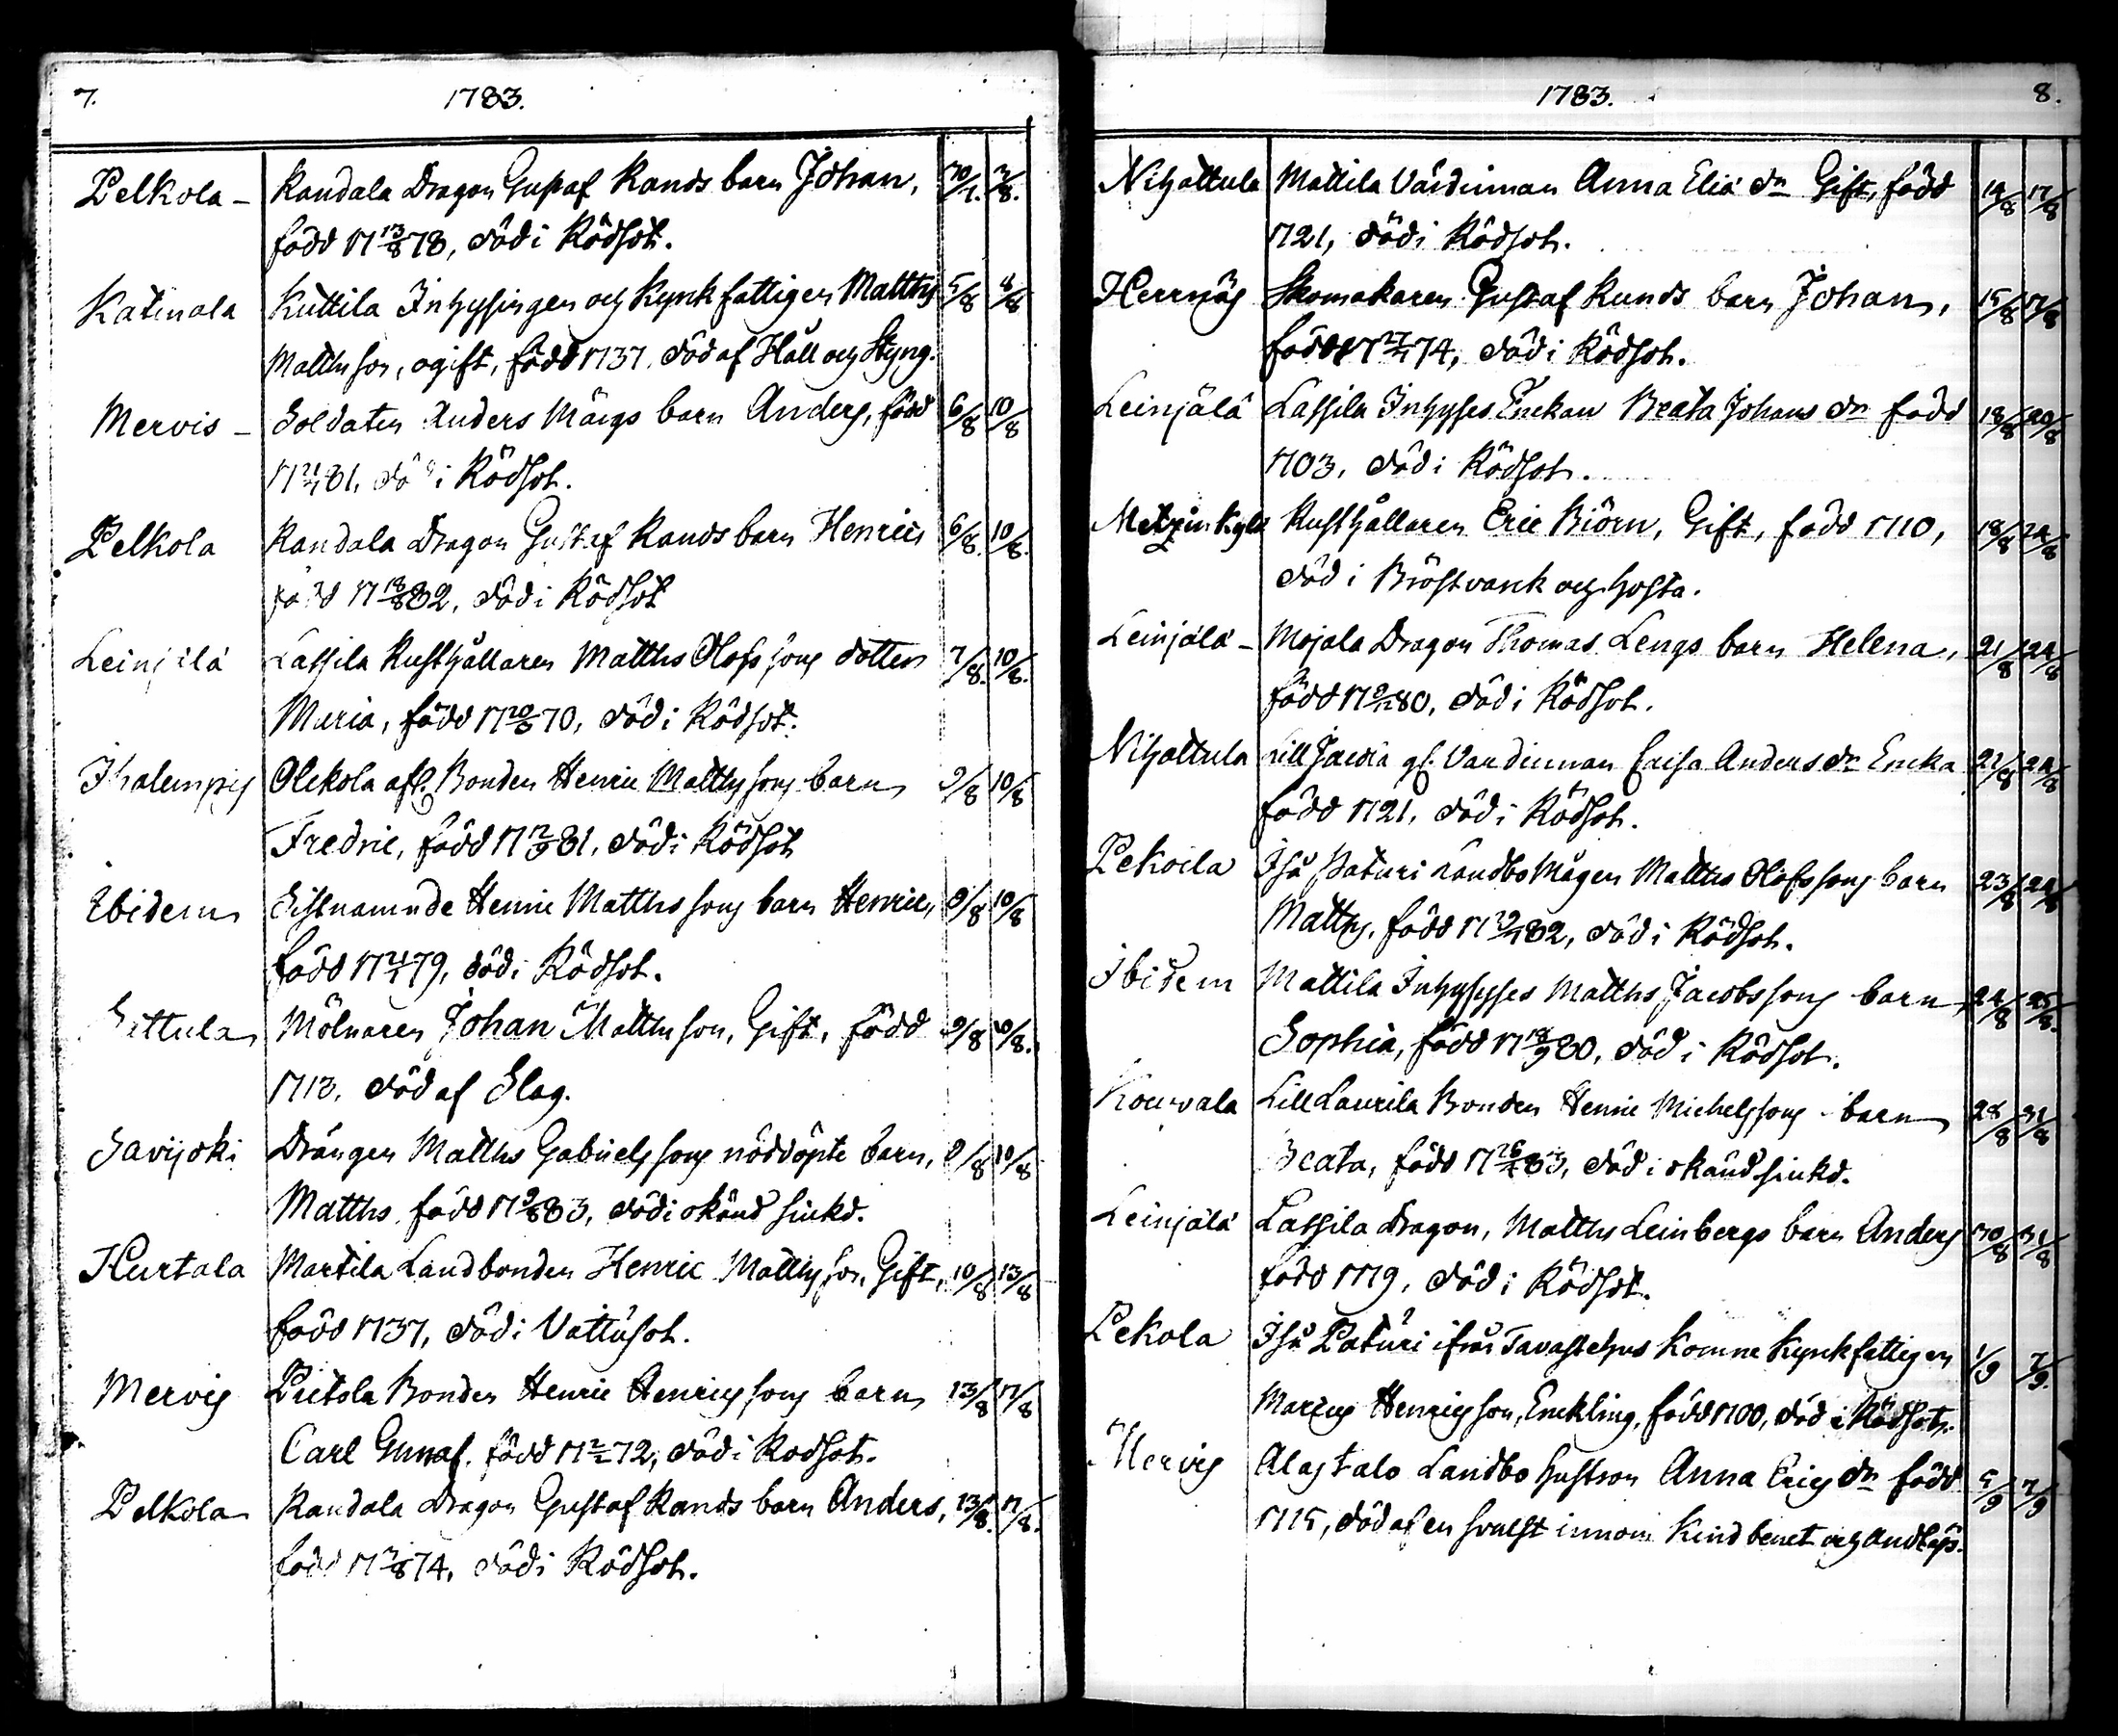 7. 1783.
Pelkola - Randala Dragon Gustaf Rands barn Johan, 30/7. 3/8.
född 17 13/8 78, död i Rödsot.
Katinala Kuttila Inhysingen och Kyrkfattigen Matths 5/8 8/8
Matthsson, ogift, född 1737, död af Håll och Styng.
Mervis - Soldaten Anders Märgs barn Anders, född 6/8 10/8
17 21/7 81, död i Rödsot.
Pelkola Randala Dragon Gustaf Rands barn Henric 6/8. 10/8.
född 17 18/8 82, död i Rödsot
Leinjälä Lassila Rusthållaren Matths Olofssons dotter 7/8. 10/8.
Maria, född 17 20/3 70, död i Rödsot.
Ihalempis Olckola afl. Bonden Henric Matthssons barn 9/8 10/8
Fredric, född 17 81, död i Rödsot
Ibidem Sistnamnde Henric Matthssons barn Henric, 9/8 10/8
född 17 79, död i Rödsot.
Sattula Mölnaren Johan Matthsson, Gift, född 9/8 10/8.
1713, död af Slag.
Savijoki Drängen Matths Gabrielssons nöddöpte barn, 9/8 10/8
Matths, född 17 9/8 83, död i okänd siukd.
Hurtala Martila Landbonden Henric Matthsson, Gift, 10/8 13/8
född 1737, död i Vattusot.
Mervis Pietola Bonden Henric Henricssons barn 13/8 17/8
Carl Gustaf. född 17 72, död i Rodsot.
Pelkola Randala Dragon Gustaf Rands barn Anders, 13/8. 17/8.
född 17 74, död i Rödsot.
1783. 8.
Nihattula Mattila Värdinnan Anna Eliæ dr Gift, född 14/8 17/8
1721, död i Rödsot.
Herrnäs Skomakaren Gustaf Runds barn Johan, 15/8 17/8
född 17 74, död i Rödsot.
Leinjälä Lassila Inhyses Enckan Beata Johans dr född 18/8 20/8
1703, död i Rödsot.
Metzänkylä Rusthållaren Eric Biörn, Gift, född 1710, 18/8 24/8
död i Bröstvärk och hosta.
Leinjälä - Mojala Dragon Thomas Lengs barn Helena, 21/8 24/8
född 17 80, död i Rödsot.
Nihattula Lill Jaccia gl. Vardinnan Caisa Anders dr Encka 22/8 24/8
född 1721, död i Rödsot.
Pekoila Iso Paturi Landbo Mågen Matths Olofssons barn 23/8 24/8
Matths, född 17 82, död i Rödsot.
Ibidem Mattila Inhyses Matths Jacobssons barn 24/8 25/8.
Sophia, född 17 18/9 80, död i Rödsot.
Kouvala Lill Laurila Bonden Henric Michelssons barn 28/8 31/8
Beata, född 17 83, död i okänd siukd.
Leinjälä Lassila Dragon, Matths Leinbergs barn Anders 30/8 31/8
född 1779, död i Rödsot.
Pekola Iso Paturi ifrån Tavastehus Komne Kyrkfattigen 1/9 7/9.
Marcus Henricsson, Enckling, född 1700, död i Rödsot.
Mervis Alastalo Landbo hustron Anna Erics dr född 5/9 7/9
1715, död af en svulst innom Kindbenet och andtäps.